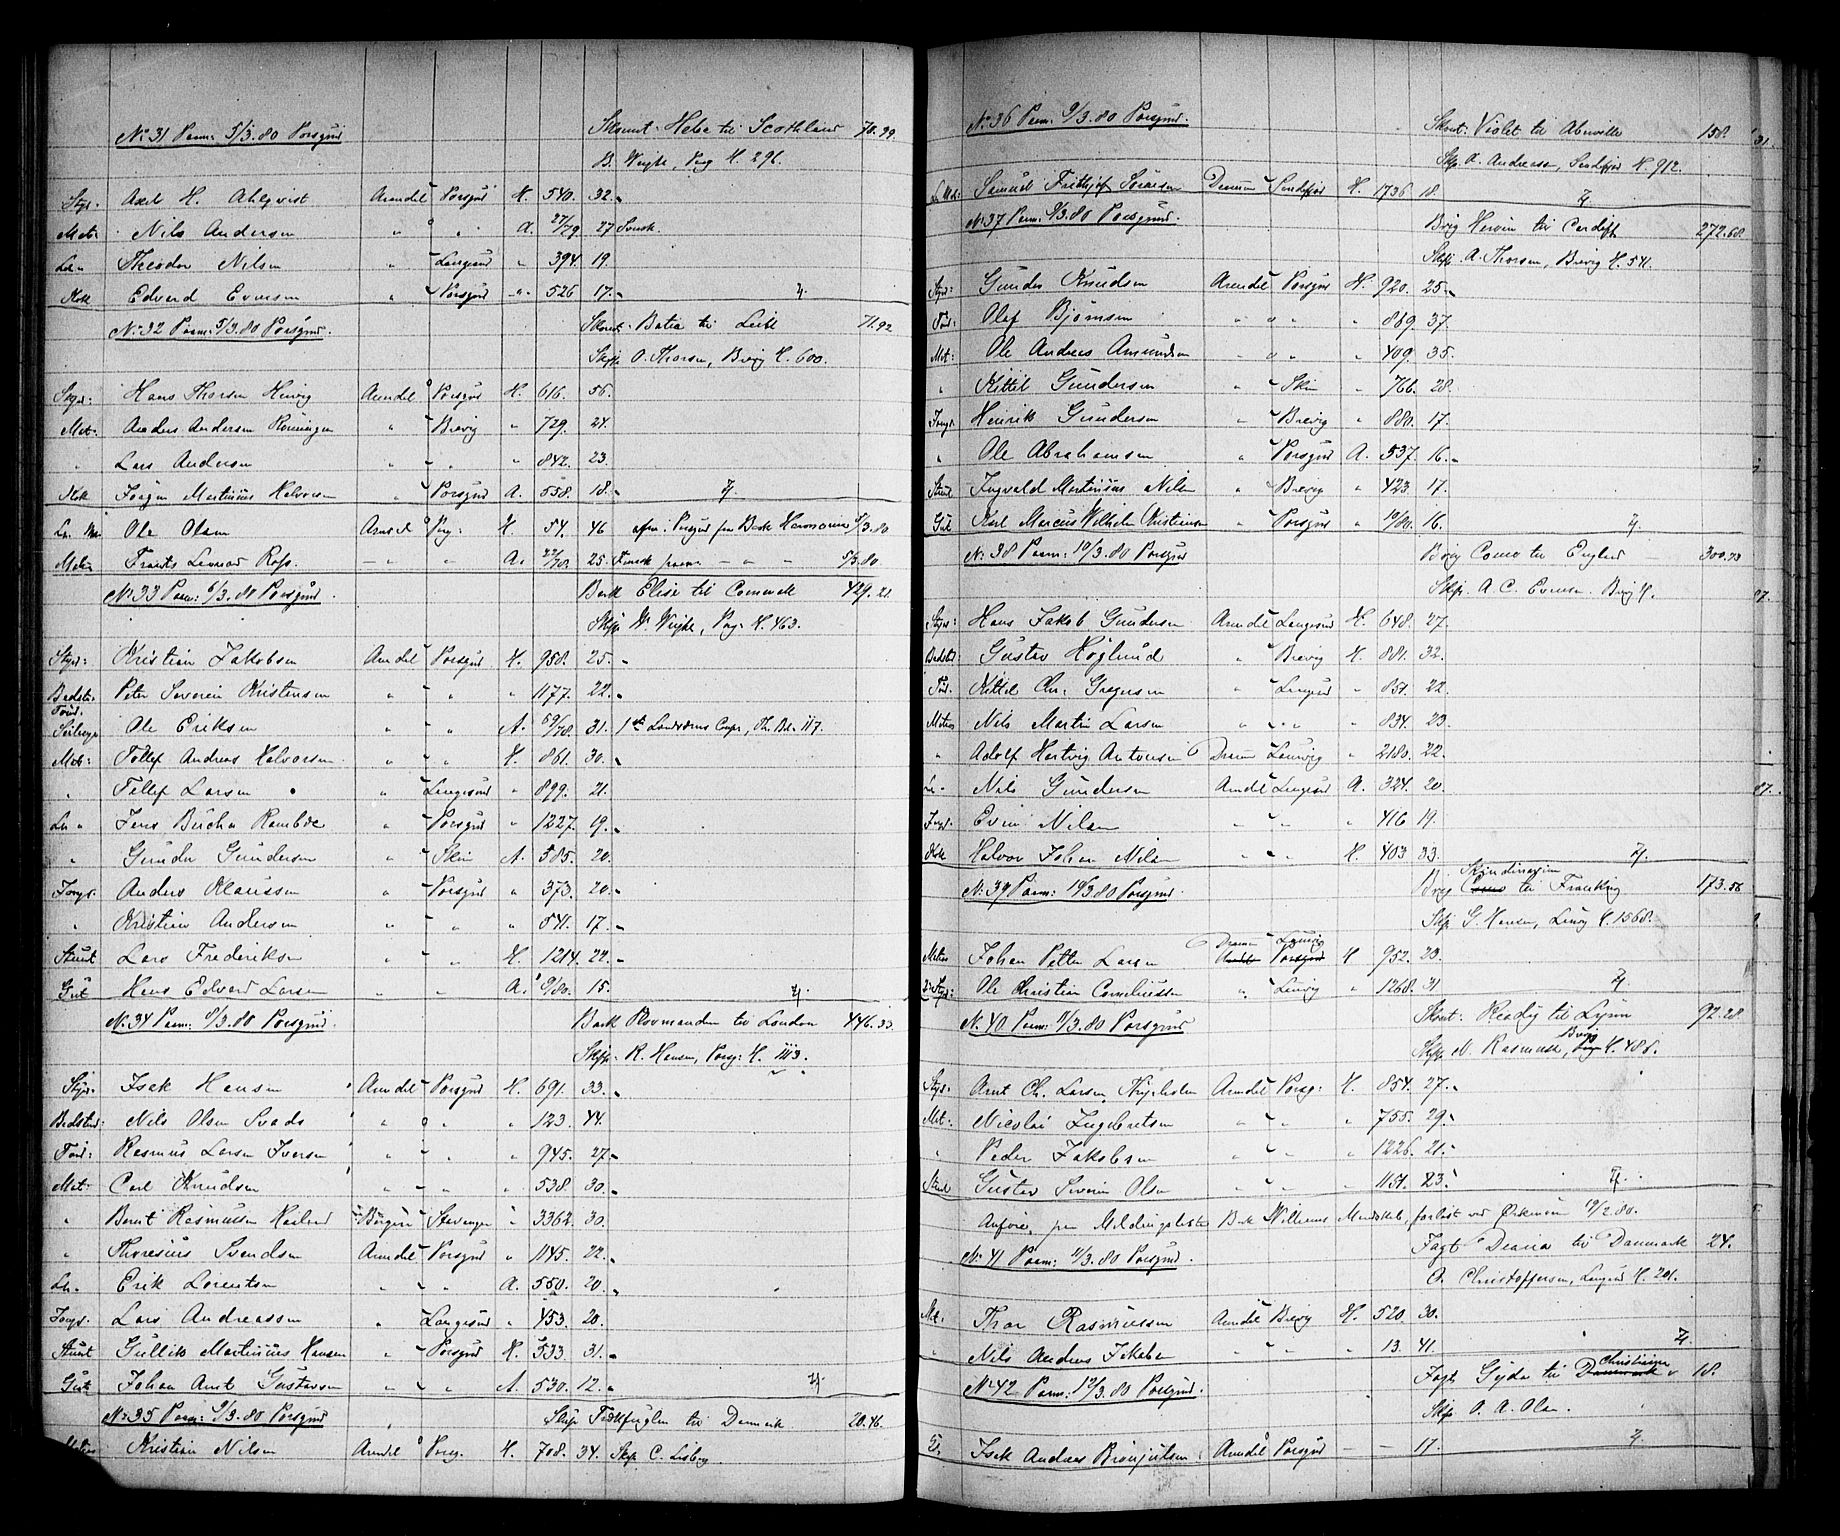 No 31 Paam: 5/3.80 Porsgrund Skonnt: Hebe til Scothland 70.99
B. Weyhe, Porsg H. 296.
Styr: Axel H. Ahlqvist Arendal Porsgrd H. 540. 32.
Mat: Nils Andersen " " A. 27/79. 27 Svensk.
Let " Theodor Nilsen " Langesund " 394. 19.
Kok Edvard Evensen " Porsgrd " 526 17.
No 32 Paam: 5/3.80 Porsgrund. Skonnt: til Leith 71.92
Skip O. Thorsen, Brevig H. 600.
Styr: Hans Thorsen Arendal Porsgrd H. 616. 56.
Mat: Anders Andersen Rønningen " Brevig " 729. 24.
" Lars Andersen " " " 842. 23.
Kok Jørgen Martinius Halvorsen " Porsgrd A. 558. 18.
Let. Ma: Ole Olsen Arendal Porsg: H. 54. 46 i Porsgrd fra Bark 5/3.80
Matros Frants Leonard " " A. 22/78. 25. Finsk 5/3.80.
No 33 Paam: 6/3.80 Porsgrund. Bark Elise til 429.21
Skip W. Weyhe, Porsg: H. 463.
Styr: Kristian Jakobsen Arendal Porsgrd H. 958. 25.
Bedst: Peter Severin Kristensen " " " 1177. 22.
Tømd.
Ole Eriksen " " A. 59/78. 31. 117.
Mat: Tollef Andreas Halvorsen " " H. 861. 30.
" Tellef Larsen " Langesund " 899. 21.
Let " Jens Bucha Rambøe " Porsgrd " 1227. 19.
" Gunder Gundersen " Skien A. 585. 20.
Jungs. Anders Klaussen " Porsgrd " 373. 20.
" Kristian Andersen " " " 541. 17.
Stuert Lars Frederiksen " " H. 1214. 22.
Gut Hans Edvard Larsen " " A. 9/80. 15.
No 34 Paam: 9/3.80 Porsgrund. Bark Plovmanden til London 446.33
Skip R. Hansen, Porsg: H. 113.
Styr: Isak Hansen Arendal Porsgrd H. 691. 33.
Bedstm: Nils Olsen " " " 123. 44.
Tømd: Rasmus Larsen Iversen " " " 945. 27.
Mat: Carl Knudsen " " " 538. 30.
" Bernt Rasmussen Bergen Stavanger " 3362. 30.
" Thoresius Svendsen Arendal Porsgrd " 1145. 22.
Let. Erik Lorentsen " " A. 550. 20.
Jungs. Lars Andreassen " Langesund " 453. 20.
Stuert Gullik Martinius Hansen " Porsgrd H. 533. 31.
Gut Johan Arnt Gustavsen " " A. 530. 12.
No 35 Paam: 9/3.80 Porsgrund Skip til Danmark 20.46.
Matros Kristian Nilsen Arendal Porsg. H. 708. 34. Skip C. Lisberg.
No 36 Paam: 9/3.80 Porsgrund. Skont: Violet til Aberville 158.
Skip. A. Andersen, Sandefjord H. 912.
Let. Mat: Samuel Frithjof Sørensen Drammen Sandefjord H. 1736 18.
No 37 Paam: 9/3.80 Porsgrund. Brig Heroin til Cardiff 272.68
Skip A. Thorsen, Brevig H. 541.
Styr: Gunder Knudsen Arendal Porsgrd H. 920. 25.
Tømd: Olaf Bjørnsen " " " 889. 37.
Mat: Ole Andreas Amundsen " " " 409. 35.
" Kittil Gundersen " Skien " 766. 28.
Jungs Henrik Gundersen " Brevig " 880. 17.
" Ole Abrahamsen " Porsgrd A. 537. 16.
Stuert Ingvald Martinius Nilsen " Brevig " 423. 17.
Gut Karl Marcus Wilhelm Kristiansen " Porsgrd " 10/80. 16.
No 38 Paam: 10/3.80 Porsgrd Brig Como til England 300.73
Skip. A. C. Evensen. Brevig H.
Styr: Hans Jakob Gundersen Arendal Langesund H. 648. 27.
Bedstm: Gustav Höglund " Brevig H. 881. 32.
Tømd. Kittil Chr. Gregersen " Langesund " 851. 22.
Matros Nils Martin Larsen " " " 834. 23.
" Adolf Hartvig Antonsen Drammen Laurvig " 2180. 22.
Let " Nils Gundersen Arendal Langesund A. 324. 20.
Jungs. Even Nilsen " " " 416 19.
Kok Halvor Johan Nilsen " " H. 403 33.
No 39 Paam: 10/3.80 Porsgrund. Brig Como Skandinavien til 173.56
Skip G. Hansen, Laurvig H. 1568.
Matros Johan Petter Larsen Drammen Laurvig Arendal Porsgrund H 952. 23.
2den Styr: Ole Christian Corneliussen " Laurvig " 1268. 31
No 40 Paam: 11/3.80 Porsgrund Skont: Ready til Lynn 92.28
Skip N. Rasmussen, Brevig H. 488.
Styr: Arnt Ch. Larsen Arendal Porsg: H. 854. 27.
Mat: Nicolai Ingebretsen " " " 755. 29.
" Peder Jakobsen " " " 1226. 21.
Stuert Gustav Severin Olsen " " " 1151. 23.
Anføres paa Meldingsliste Bark Williams Mandskab, forlist ved 12/2.80.
No 41 Paam: 11/3.80 Porsgrund. Jagt Diana til Danmark 24.
O. Christoffersen, Langesund H. 201.
Mat. Thor Rasmussen Arendal Brevig H. 520. 30.
" Nils Anders Jakobsen " " " 13. 41.
No 42 Paam: 12/3.80 Porsgrund Jagt Gyda til Danmark Christiania 18.
Skip O. A. Olsen.
Isak Andreas Arendal Porsgrd — — 17.